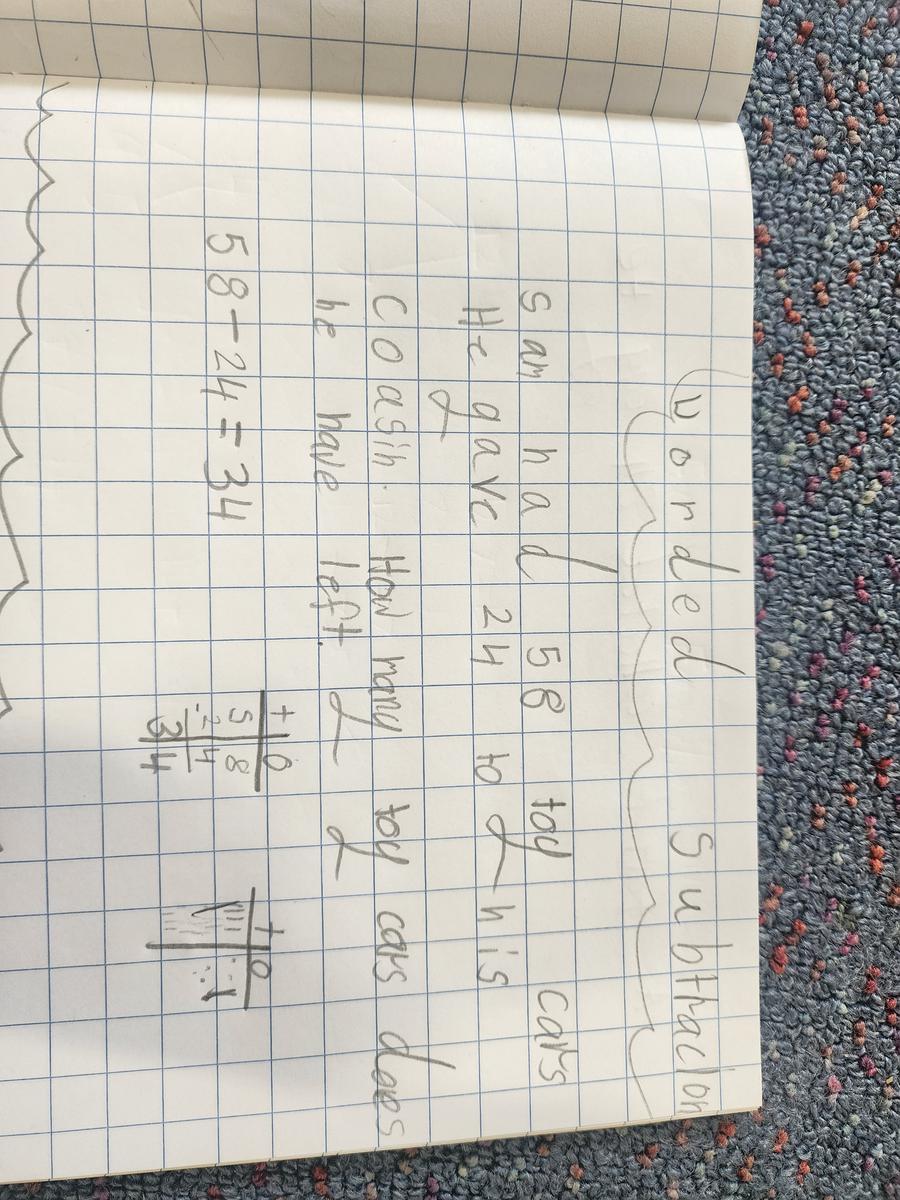 Worded Subthacion
Sam had 58 toy cars
He gave 24 to his
coasin. How many toy cars does
he have left.
58-24=34
+ 0
5 8
-2 4
3 4
+ 0